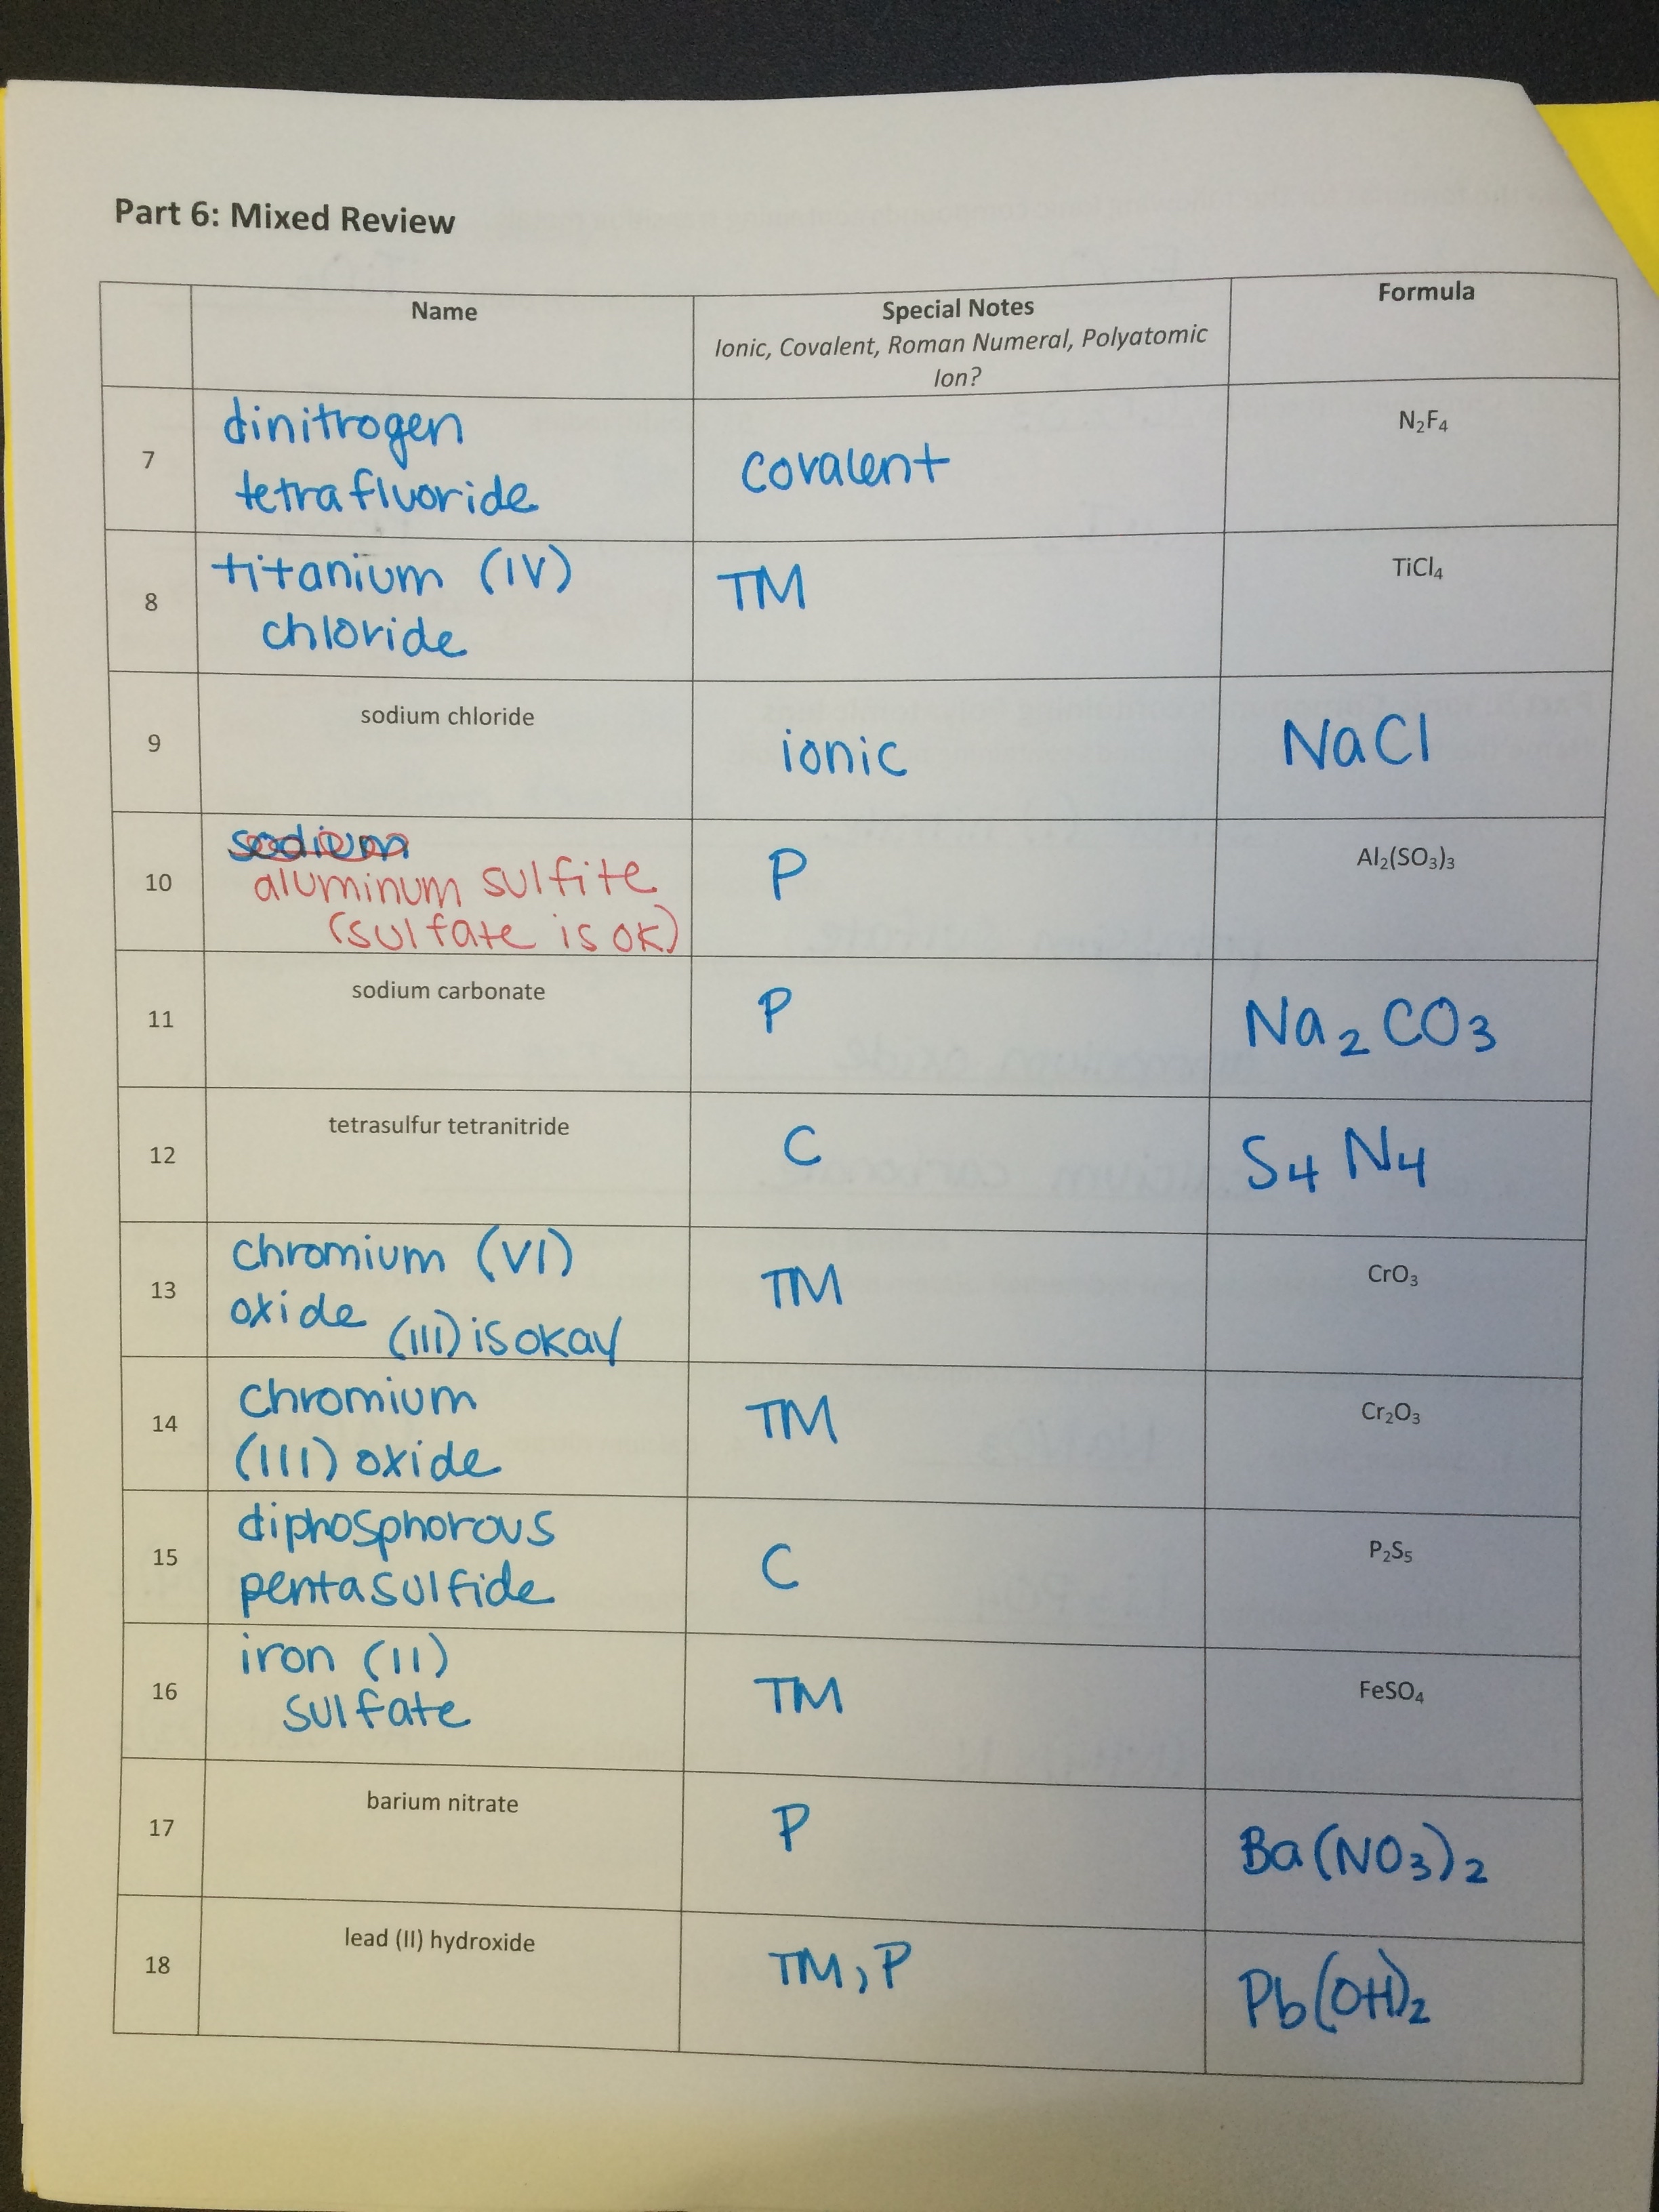 Part 6: Mixed Review
Name
Special Notes
Ionic, Covalent, Roman Numeral, Polyatomic
Ion?
Formula
7
dinitrogen
tetrafluoride
covalent
N₂F₄
8
titanium (IV)
chloride
TM
TiCl₄
9
sodium chloride
ionic
NaCl
10
sodium
aluminum sulfite
(sulfate is ok)
P
Al₂(SO₃)₃
11
sodium carbonate
P
Na₂CO₃
12
tetrasulfur tetranitride
C
S₄N₄
13
chromium (VI)
oxide (III) is okay
TM
CrO₃
14
chromium
(III) oxide
TM
Cr₂O₃
15
diphosphorous
pentasulfide
C
P₂S₅
16
iron (II)
sulfate
TM
FeSO₄
17
barium nitrate
P
Ba(NO₃)₂
18
lead (II) hydroxide
TM, P
Pb(OH)₂